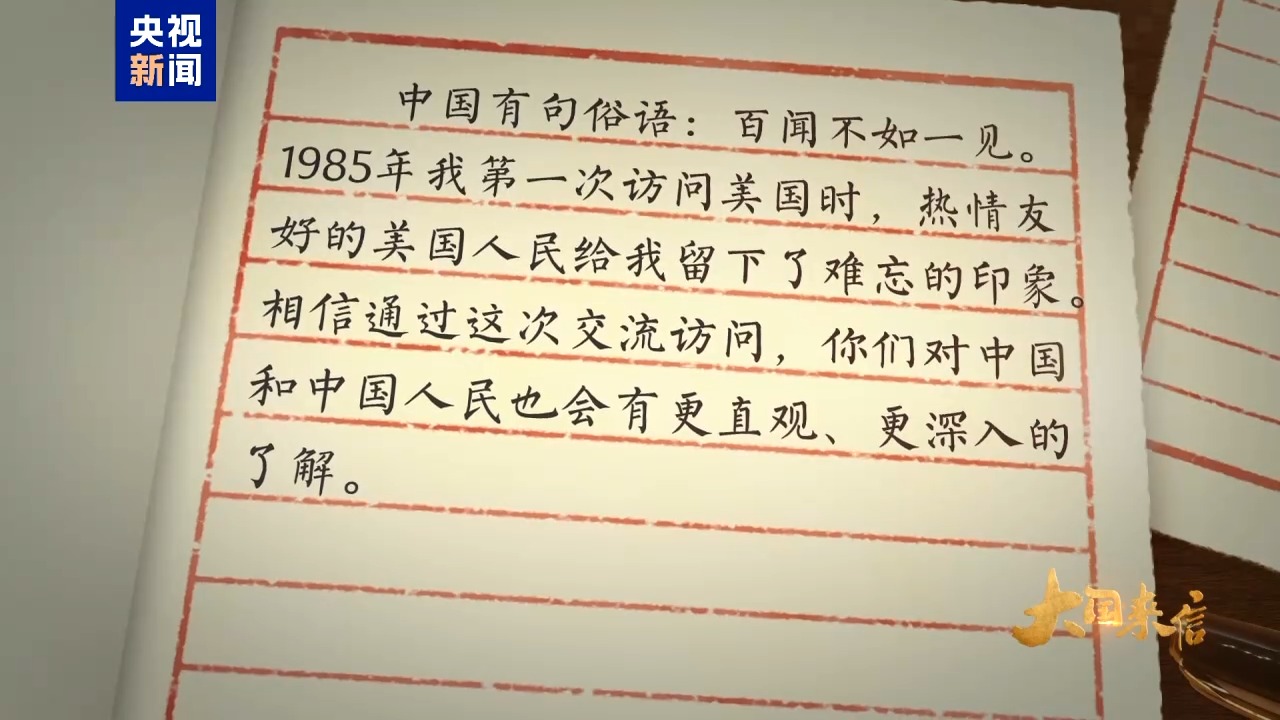 央视
新闻
中国有句俗语：百闻不如一见。
1985年我第一次访问美国时，热情友
好的美国人民给我留下了难忘的印象。
相信通过这次交流访问，你们对中国
和中国人民也会有更直观、更深入的
了解。
大国来信